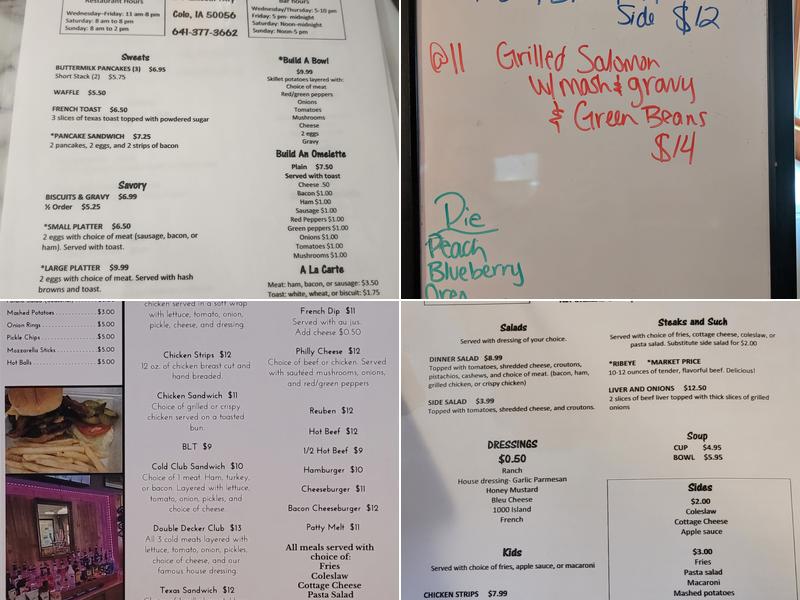 Restaurant Hours
Wednesday-Friday: 11 am-8 pm
Saturday: 8 am to 8 pm
Sunday: 8 am to 2 pm
Colo, IA 50056
641-377-3662
Bar Hours
Wednesday/Thursday: 5-10 pm
Friday: 5 pm- midnight
Saturday: Noon-midnight
Sunday: Noon-5 pm
Sweets
BUTTERMILK PANCAKES (3) $6.95
Short Stack (2) $5.75
WAFFLE $5.50
FRENCH TOAST $6.50
3 slices of texas toast topped with powdered sugar
*PANCAKE SANDWICH $7.25
2 pancakes, 2 eggs, and 2 strips of bacon
Savory
BISCUITS & GRAVY $6.99
½ Order $5.25
*SMALL PLATTER $6.50
2 eggs with choice of meat (sausage, bacon, or
ham). Served with toast.
*LARGE PLATTER $9.99
2 eggs with choice of meat. Served with hash
browns and toast.
*Build A Bowl
$9.99
Skillet potatoes layered with:
Choice of meat
Red/green peppers
Onions
Tomatoes
Mushrooms
Cheese
2 eggs
Gravy
Build An Omelette
Plain $7.50
Served with toast
Cheese .50
Bacon $1.00
Ham $1.00
Sausage $1.00
Red Peppers $1.00
Green peppers $1.00
Onions $1.00
Tomatoes $1.00
Mushrooms $1.00
A La Carte
Meat: ham, bacon, or sausage: $3.50
Toast: white, wheat, or biscuit: $1.75
Side $12
@11 Grilled Salomon
w/mash & gravy
& Green Beans
$14
Pie
Peach
Blueberry
Mashed Potatoes $3.00
Onion Rings $5.00
Pickle Chips $5.00
Mozzarella Sticks $5.00
Hot Balls $5.00
chicken served in a soft wrap
with lettuce, tomato, onion,
pickle, cheese, and dressing.
Chicken Strips $12
12 oz. of chicken breast cut and
hand breaded.
Chicken Sandwich $11
Choice of grilled or crispy
chicken served on a toasted
bun.
BLT $9
Cold Club Sandwich $10
Choice of 1 meat. Ham, turkey,
or bacon. Layered with lettuce,
tomato, onion, pickles, and
choice of cheese.
Double Decker Club $13
All 3 cold meats layered with
lettuce, tomato, onion, pickles,
choice of cheese, and our
famous house dressing.
Texas Sandwich $12
French Dip $11
Served with au jus.
Add cheese $0.50
Philly Cheese $12
Choice of beef or chicken. Served
with sauteed mushrooms, onions,
and red/green peppers
Reuben $12
Hot Beef $12
1/2 Hot Beef $9
Hamburger $10
Cheeseburger $11
Bacon Cheeseburger $12
Patty Melt $11
All meals served with
choice of:
Fries
Coleslaw
Cottage Cheese
Pasta Salad
Salads
Served with dressing of your choice.
DINNER SALAD $8.99
Topped with tomatoes, shredded cheese, croutons,
pistachios, cashews, and choice of meat. (bacon, ham,
grilled chicken, or crispy chicken)
SIDE SALAD $3.99
Topped with tomatoes, shredded cheese, and croutons.
DRESSINGS
$0.50
Ranch
House dressing- Garlic Parmesan
Honey Mustard
Bleu Cheese
1000 Island
French
Kids
Served with choice of fries, apple sauce, or macaroni
CHICKEN STRIPS $7.99
Steaks and Such
Served with choice of fries, cottage cheese, coleslaw, or
pasta salad. Substitute side salad for $2.00
*RIBEYE *MARKET PRICE
10-12 ounces of tender, flavorful beef. Delicious!
LIVER AND ONIONS $12.50
2 slices of beef liver topped with thick slices of grilled
onions
Soup
CUP $4.95
BOWL $5.95
Sides
$2.00
Coleslaw
Cottage Cheese
Apple sauce
$3.00
Fries
Pasta salad
Macaroni
Mashed potatoes